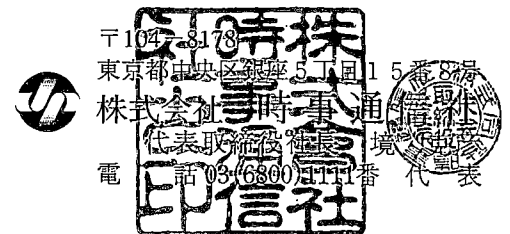 〒104-8178
東京都中央区銀座5丁目15番8号
株式会社 時事通信社
代表取締役社長 境
電 話 03(6800)1111番 代 表
株式会社時事通信社印